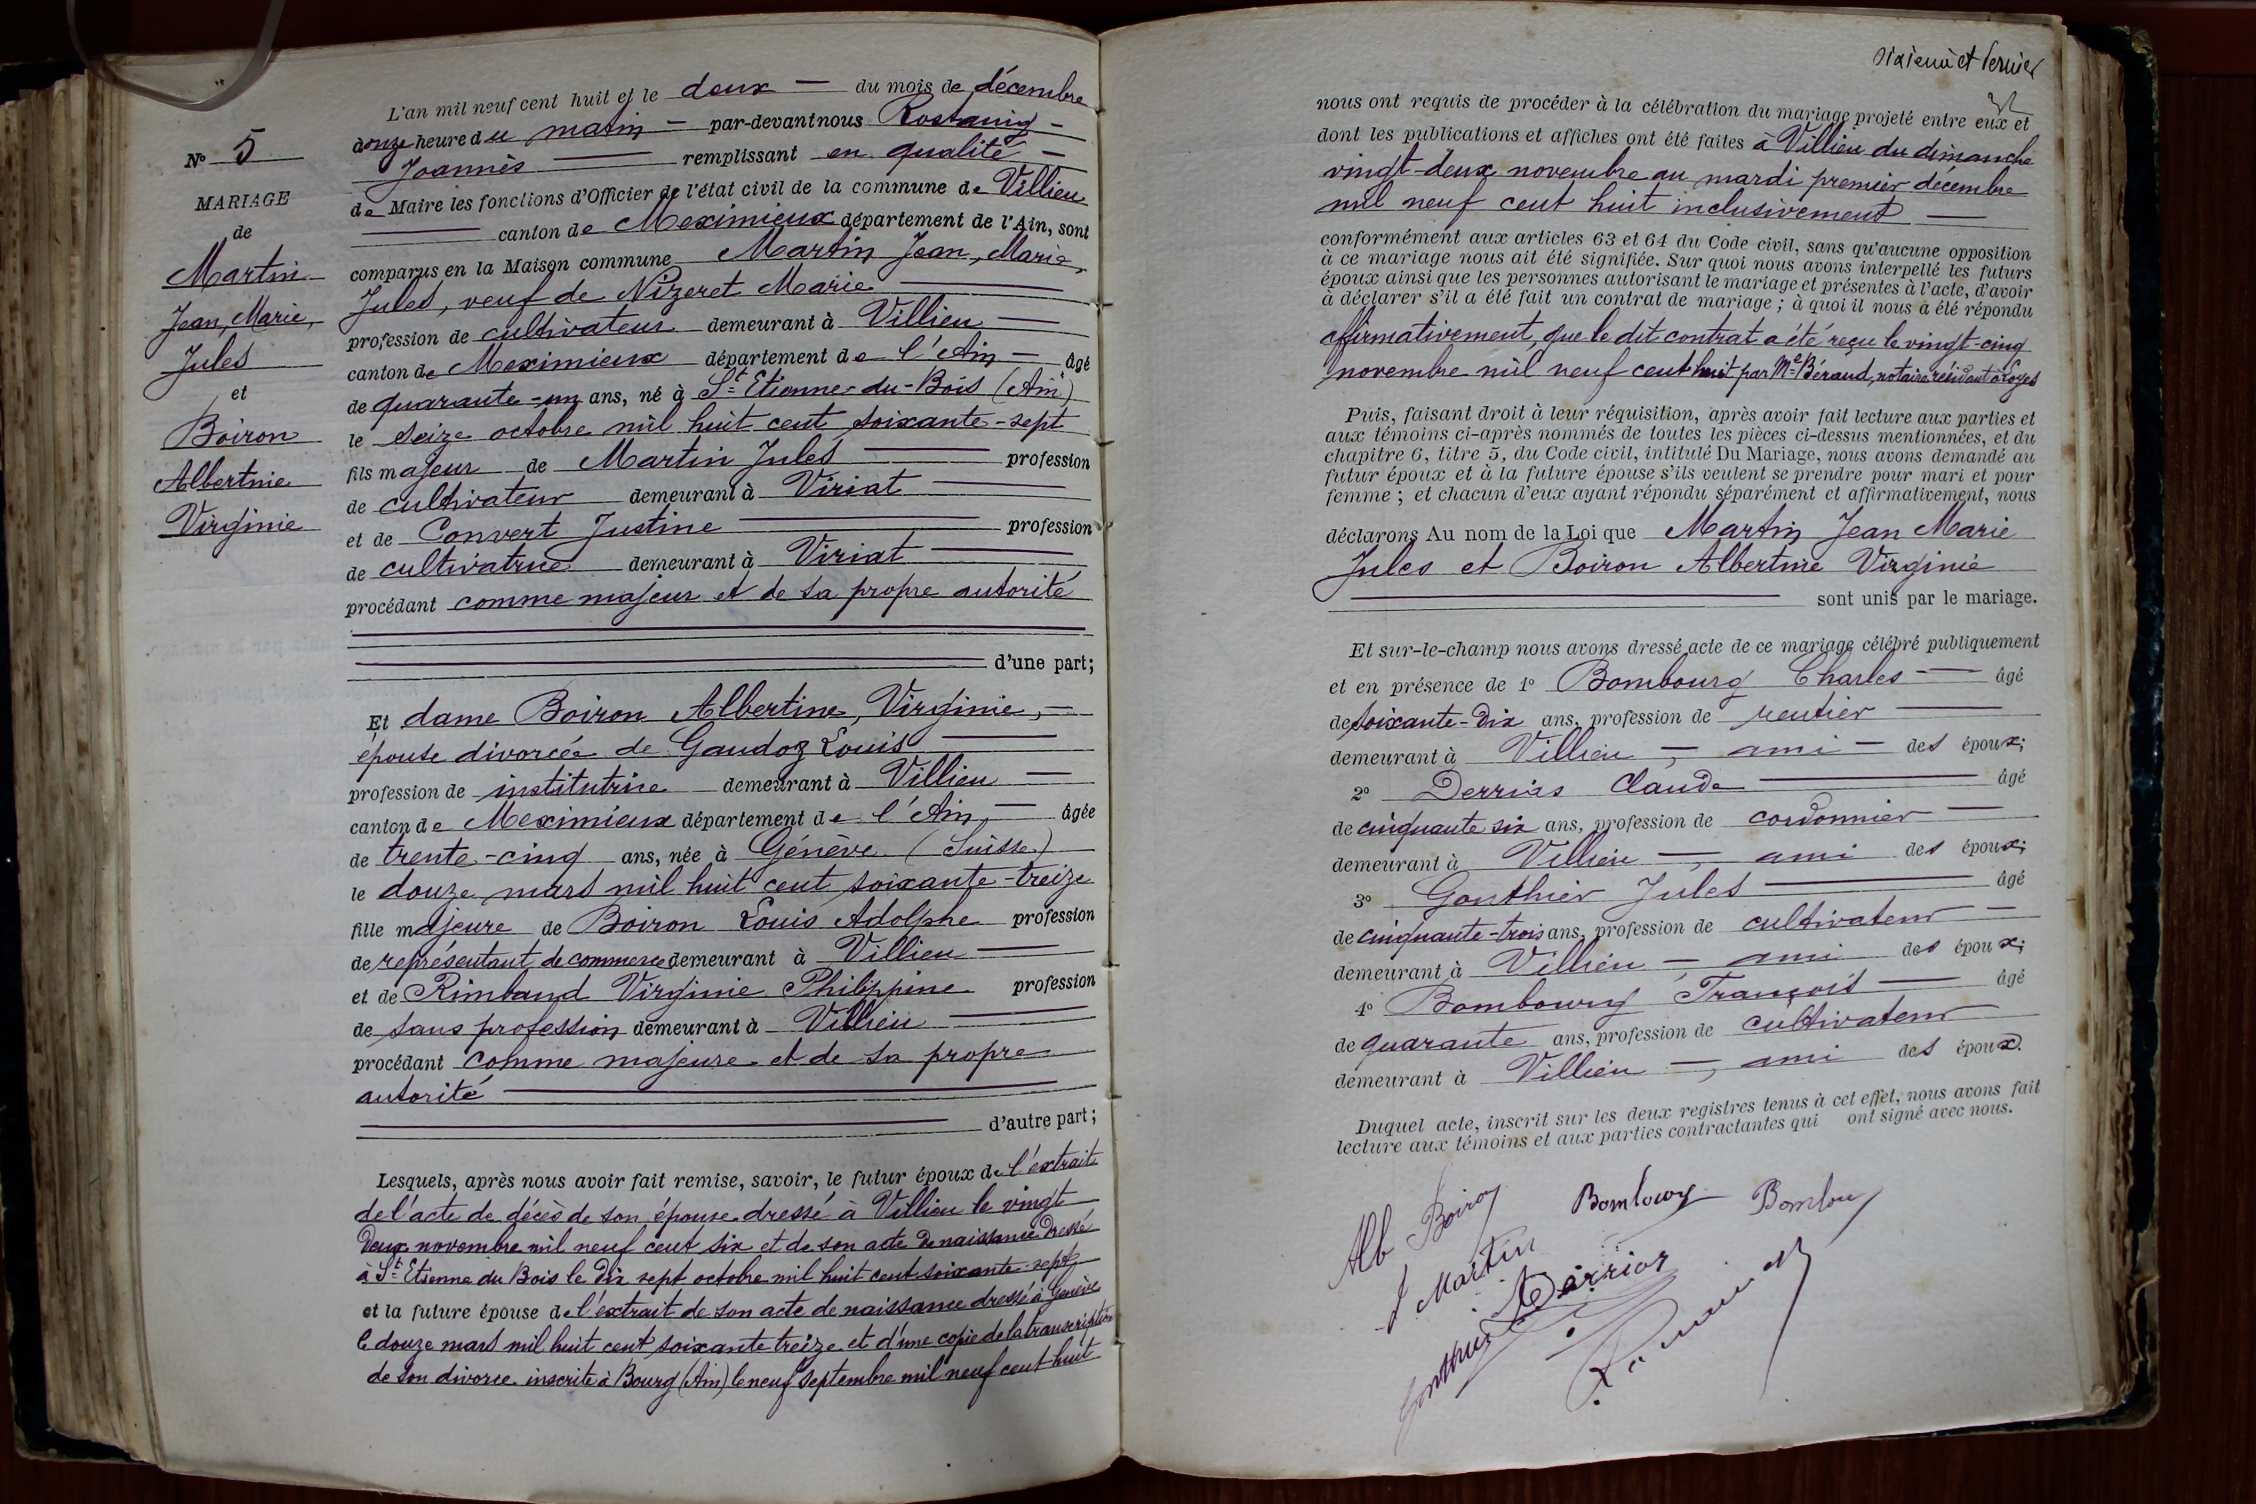 N° 5
MARIAGE
de
Martin
Jean, Marie,
Jules
et
Boiron
Albertine
Virginie
L'an mil neuf cent huit et le deux — du mois de décembre
à onze heure du matin — par-devant nous Rostaing —
Joannès — remplissant en qualité —
de Maire les fonctions d'Officier de l'état civil de la commune de Villieu
— canton de Meximieux département de l'Ain, sont
comparus en la Maison commune Martin Jean, Marie,
Jules, veuf de Nizeret Marie —
profession de cultivateur demeurant à Villieu —
canton de Meximieux département de l'Ain — âgé
de quarante-un ans, né à St Etienne-du-Bois (Ain)
le seize octobre mil huit cent soixante-sept
fils majeur de Martin Jules — profession
de cultivateur demeurant à Viriat —
et de Convert Justine — profession
de cultivatrice demeurant à Viriat —
procédant comme majeur et de sa propre autorité
d'une part;
Et dame Boiron Albertine, Virginie, —
épouse divorcée de Gaudoz Louis —
profession de institutrice demeurant à Villieu —
canton de Meximieux département de l'Ain, — âgée
de trente-cinq ans, née à Génève (Suisse)
le douze mars mil huit cent soixante-treize
fille majeure de Boiron Louis Adolphe profession
de représentant de commerce demeurant à Villieu —
et de Rimbaud Virginie Philippine profession
de sans profession demeurant à Villieu —
procédant comme majeure et de sa propre
autorité —
d'autre part;
Lesquels, après nous avoir fait remise, savoir, le futur époux de l'extrait
de l'acte de décès de son épouse dressé à Villieu le vingt
deux novembre mil neuf cent six et de son acte de naissance dressé
à St Etienne du Bois le dix sept octobre mil huit cent soixante-sept
et la future épouse de l'extrait de son acte de naissance dressé à Genève
le douze mars mil huit cent soixante treize et d'une copie de la transcription
de son divorce inscrite à Bourg (Ain) le neuf septembre mil neuf cent huit
sixième et dernier
nous ont requis de procéder à la célébration du mariage projeté entre eux et
dont les publications et affiches ont été faites à Villieu du dimanche
vingt-deux novembre au mardi premier décembre
mil neuf cent huit inclusivement —
conformément aux articles 63 et 64 du Code civil, sans qu'aucune opposition
à ce mariage nous ait été signifiée. Sur quoi nous avons interpellé les futurs
époux ainsi que les personnes autorisant le mariage et présentes à l'acte, d'avoir
à déclarer s'il a été fait un contrat de mariage; à quoi il nous a été répondu
affirmativement, que le dit contrat a été reçu le vingt-cinq
novembre mil neuf cent huit par Me Béraud, notaire résidant à Loyes
Puis, faisant droit à leur réquisition, après avoir fait lecture aux parties et
aux témoins ci-après nommés de toutes les pièces ci-dessus mentionnées, et du
chapitre 6, titre 5, du Code civil, intitulé Du Mariage, nous avons demandé au
futur époux et à la future épouse s'ils veulent se prendre pour mari et pour
femme; et chacun d'eux ayant répondu séparément et affirmativement, nous
déclarons Au nom de la Loi que Martin Jean Marie
Jules et Boiron Albertine Virginie
— sont unis par le mariage.
Et sur-le-champ nous avons dressé acte de ce mariage célébré publiquement
et en présence de 1° Bombourg Charles — âgé
de soixante-dix ans, profession de rentier —
demeurant à Villieu —, ami — des époux;
2° Derrias Claude — âgé
de cinquante six ans, profession de cordonnier —
demeurant à Villieu —, ami des époux;
3° Gonthier Jules — âgé
de cinquante-trois ans, profession de cultivateur —
demeurant à Villieu —, ami des époux;
4° Bombourg François — âgé
de quarante ans, profession de cultivateur
demeurant à Villieu —, ami des époux.
Duquel acte, inscrit sur les deux registres tenus à cet effet, nous avons fait
lecture aux témoins et aux parties contractantes qui ont signé avec nous.
Alb Boiron
Bombourg
J Martin
Derrias
Gonthier